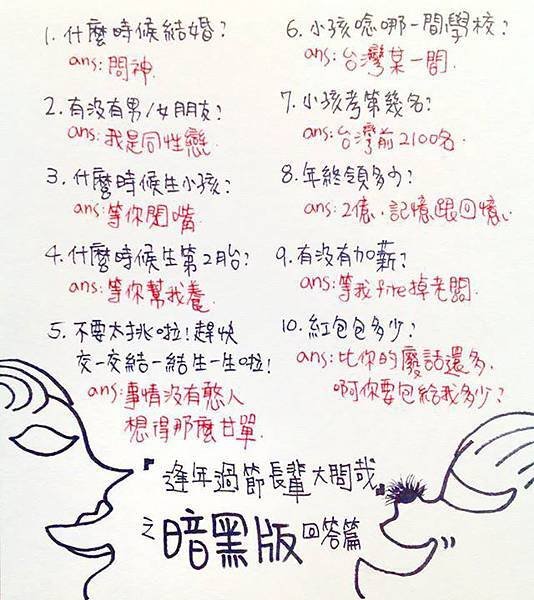 1. 什麼時候結婚?
ans: 問神.
2. 有沒有男/女朋友?
ans: 我是同性戀.
3. 什麼時候生小孩?
ans: 等你閉嘴.
4. 什麼時候生第2胎?
ans: 等你幫我養.
5. 不要太挑啦!趕快
交一交結一結生一生啦!
ans: 事情沒有憨人
想得那麼甘單.
6. 小孩唸哪一間學校?
ans: 台灣某一間.
7. 小孩考第幾名?
ans: 台灣前2100名.
8. 年終領多少?
ans: 2億.記憶跟回憶.
9. 有沒有加薪?
ans: 等我fire掉老闆.
10. 紅包包多少?
ans: 比你的廢話還多.
啊你要包給我多少?
『逢年過節長輩大問哉』
之暗黑版回答篇